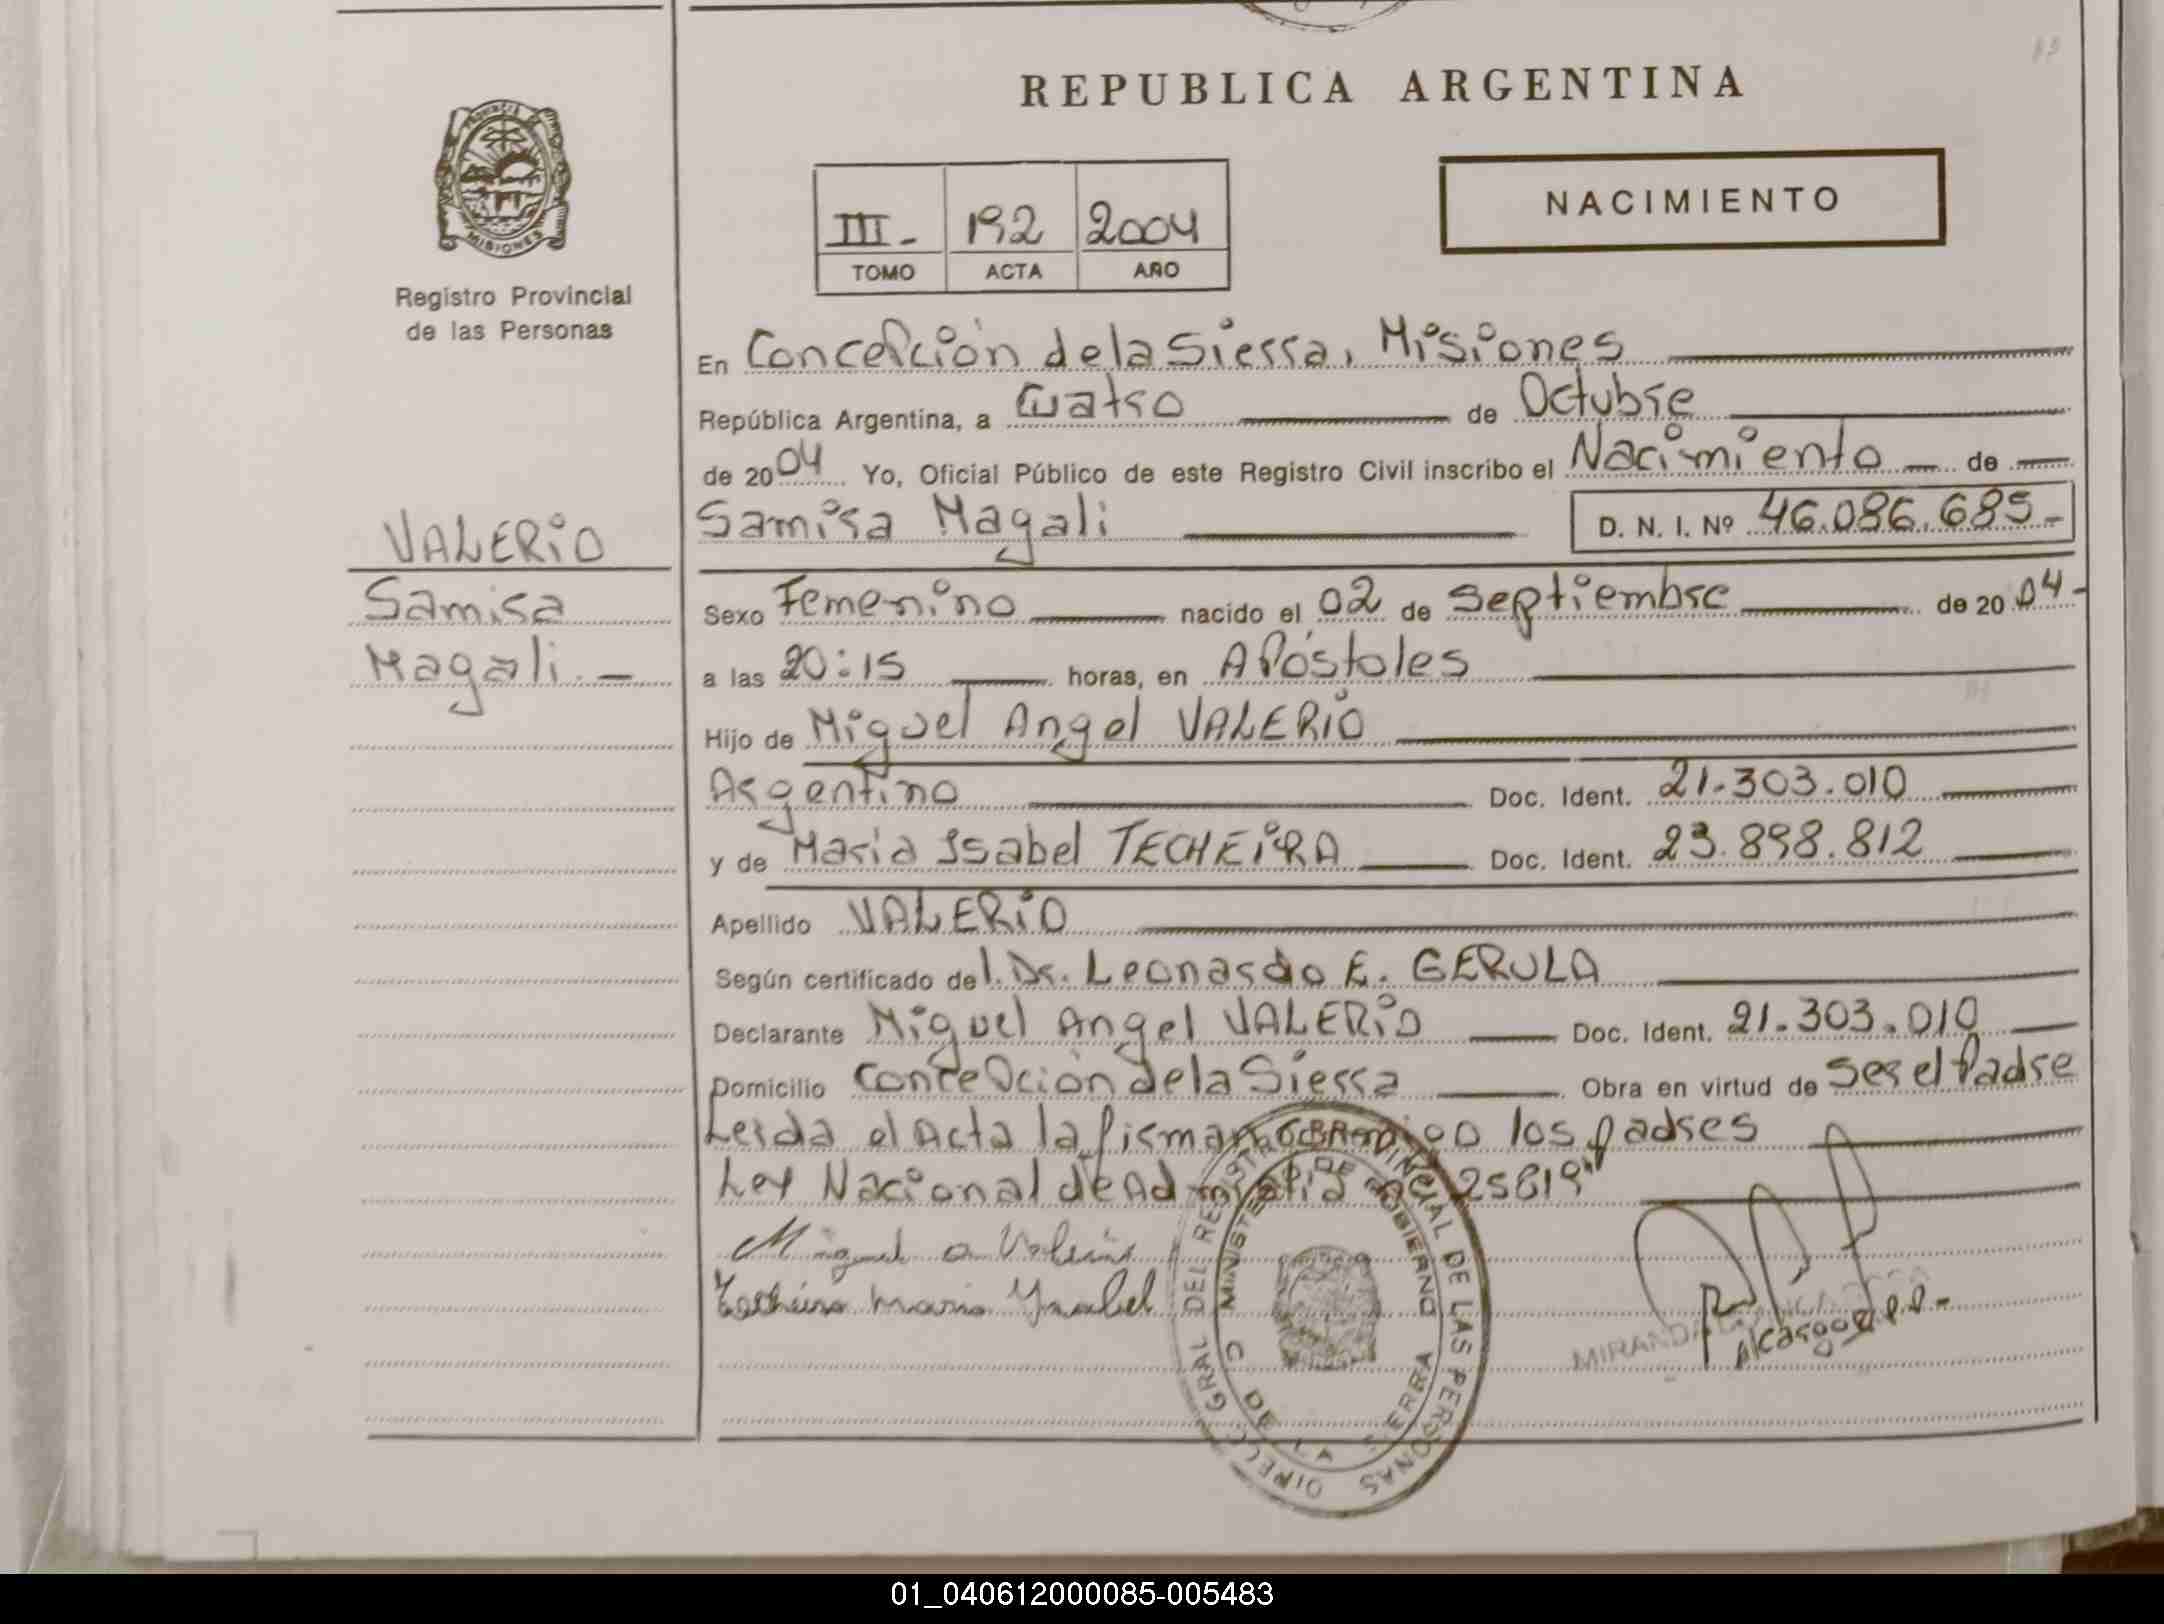 REPUBLICA ARGENTINA
PROVINCIA DE
MISIONES
Registro Provincial
de las Personas
III - 192 2004
TOMO ACTA AÑO
NACIMIENTO
En Concepción de la Sierra, Misiones
República Argentina, a Cuatro de Octubre
de 2004 Yo, Oficial Público de este Registro Civil inscribo el Nacimiento de
Samira Magali
D. N. I. Nº 46.086.685-
VALERIO
Samira
Magali. -
Sexo Femenino nacido el 02 de Septiembre de 2004-
a las 20:15 horas, en Apóstoles
Hijo de Miguel Angel VALERIO
Argentino Doc. Ident. 21.303.010
y de Maria Isabel TECHEIRA Doc. Ident. 23.898.812
Apellido VALERIO
Según certificado del. Dr. Leonardo E. GERULA
Declarante Miguel Angel VALERIO Doc. Ident. 21.303.010
Domicilio Concepción de la Sierra Obra en virtud de ser el Padre
Leida el Acta la firman los padres
Ley Nacional de Admistia 25819"
Miguel a Valerio
Techeira Maria Ysabel
DIRECC GRAL DEL REGISTRO PROVINCIAL DE LAS PERSONAS
MINISTERIO DE GOBIERNO
C DE LA SIERRA
MIRANDA
A/cargo R.P.P.-
01_040612000085-005483